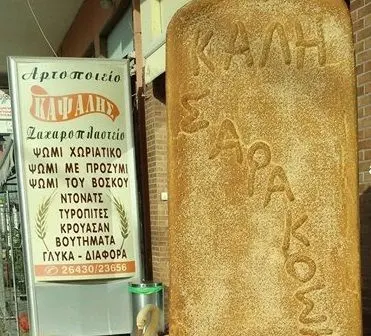 Αρτοποιείο
ΚΑΨΑΛΗΣ
Ζαχαροπλαστείο
ΨΩΜΙ ΧΩΡΙΑΤΙΚΟ
ΨΩΜΙ ΜΕ ΠΡΟΖΥΜΙ
ΨΩΜΙ ΤΟΥ ΒΟΣΚΟΥ
ΝΤΟΝΑΤΣ
ΤΥΡΟΠΙΤΕΣ
ΚΡΟΥΑΣΑΝ
ΒΟΥΤΗΜΑΤΑ
ΓΛΥΚΑ - ΔΙΑΦΟΡΑ
26430/23656
ΚΑΛΗ
ΣΑΘΑΚΟΣ